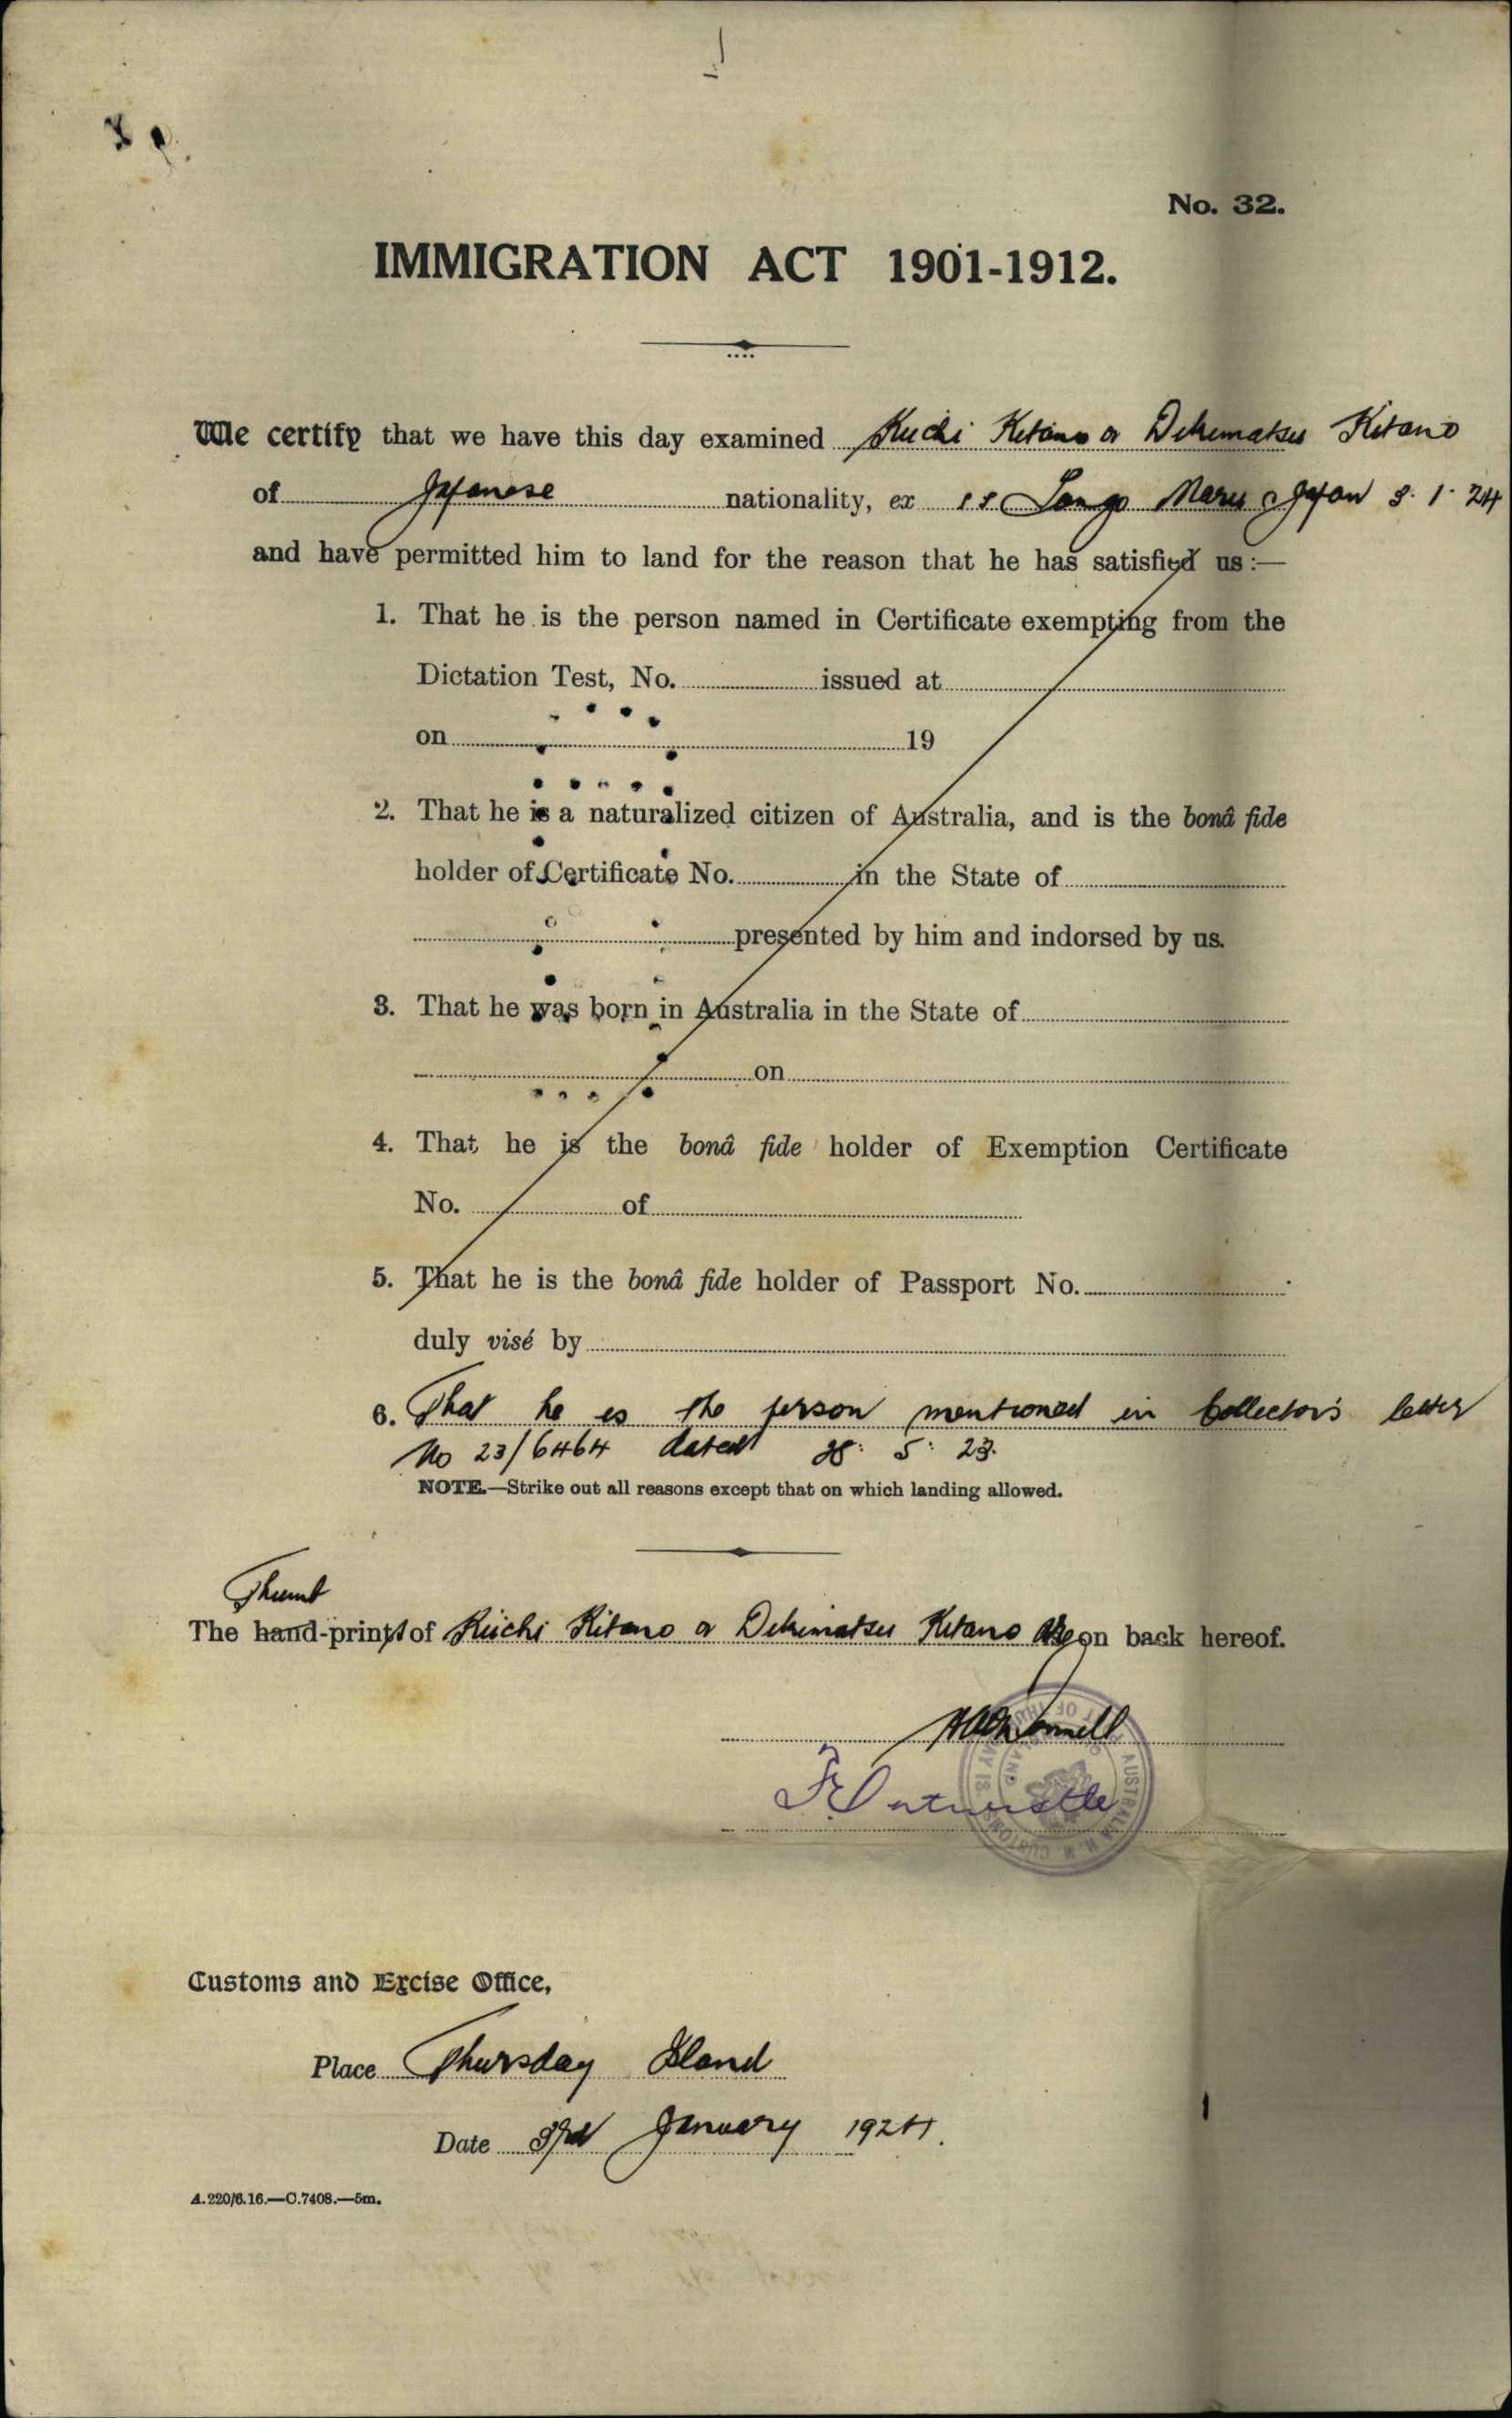 No. 32.
IMMIGRATION ACT 1901-1912.
We certify that we have this day examined Kiichi Kitano or Dekimatsu Kitano
of Japanese nationality, ex ss Tango Maru Japan 3. 1. 24
and have permitted him to land for the reason that he has satisfied us:—
1. That he is the person named in Certificate exempting from the
Dictation Test, No. issued at
on 19
2. That he is a naturalized citizen of Australia, and is the bonâ fide
holder of Certificate No. in the State of
presented by him and indorsed by us.
3. That he was born in Australia in the State of
on
4. That he is the bonâ fide holder of Exemption Certificate
No. of
5. That he is the bonâ fide holder of Passport No.
duly visé by
6. That he is the person mentioned in Collector's letter
No 23/6464 dated 28: 5: 23.
NOTE.—Strike out all reasons except that on which landing allowed.
Thumb
The hand-print of Kiichi Kitano or Dekimatsu Kitano on back hereof.
Customs and Excise Office,
Place Thursday Island
Date 3rd January 1924.
A.220/6.16.—C.7408.—5m.